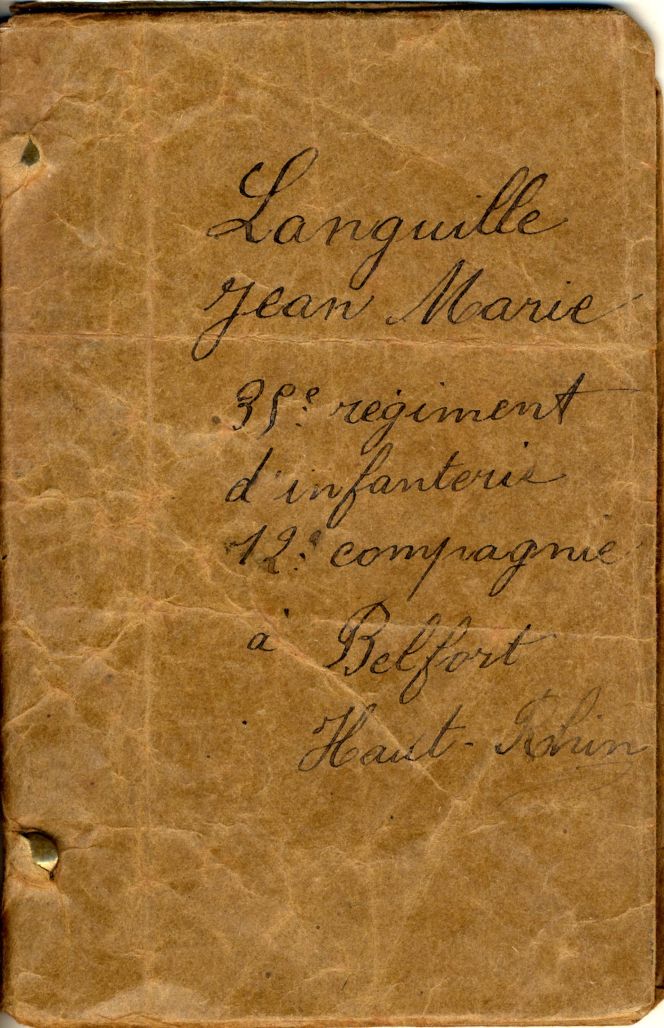 Languille
Jean Marie
35e regiment
d'infanterie
12e compagnie
à Belfort
Haut-Rhin